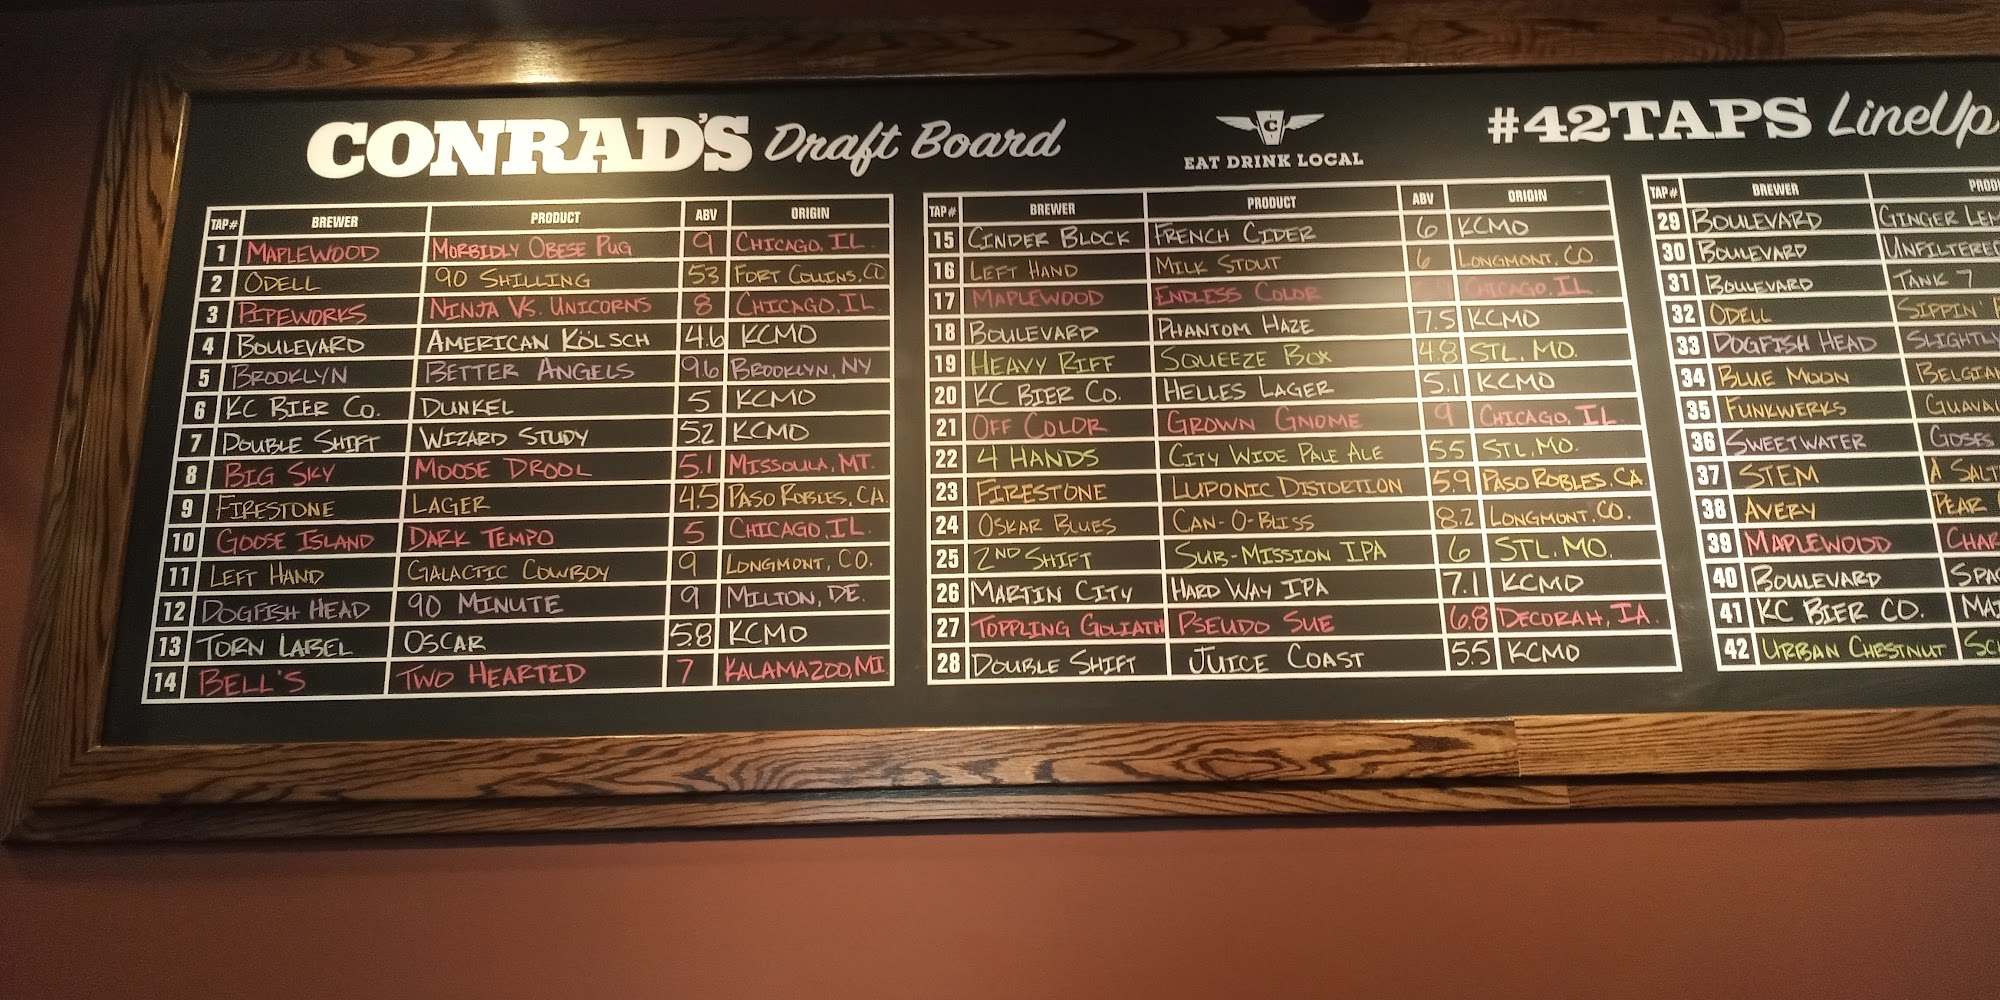 CONRAD'S Draft Board
EAT DRINK LOCAL
#42TAPS LineUp
TAP# BREWER PRODUCT ABV ORIGIN
1 MAPLEWOOD MORBIDLY OBESE PUG 9 CHICAGO, IL.
2 ODELL 90 SHILLING 53 FORT COLLINS, CO
3 PIPEWORKS NINJA VS. UNICORNS 8 CHICAGO, IL
4 BOULEVARD AMERICAN KÖLSCH 4.6 KCMO
5 BROOKLYN BETTER ANGELS 9.6 BROOKLYN, NY
6 KC BIER CO. DUNKEL 5 KCMO
7 DOUBLE SHIFT WIZARD STUDY 52 KCMO
8 BIG SKY MOOSE DROOL 5.1 MISSOULA, MT.
9 FIRESTONE LAGER 4.5 PASO ROBLES, CA.
10 GOOSE ISLAND DARK TEMPO 5 CHICAGO, IL.
11 LEFT HAND GALACTIC COWBOY 9 LONGMONT, CO.
12 DOGFISH HEAD 90 MINUTE 9 MILTON, DE.
13 TORN LABEL OSCAR 5.8 KCMO
14 BELL'S TWO HEARTED 7 KALAMAZOO, MI
TAP# BREWER PRODUCT ABV ORIGIN
15 CINDER BLOCK FRENCH CIDER 6 KCMO
16 LEFT HAND MILK STOUT 6 LONGMONT, CO.
17 MAPLEWOOD ENDLESS COLOR CHICAGO, IL.
18 BOULEVARD PHANTOM HAZE 7.5 KCMO
19 HEAVY RIFF SQUEEZE BOX 4.8 STL, MO.
20 KC BIER CO. HELLES LAGER 5.1 KCMO
21 OFF COLOR GROWN GNOME 9 CHICAGO, IL
22 4 HANDS CITY WIDE PALE ALE 5.5 STL, MO.
23 FIRESTONE LUPONIC DISTORTION 5.9 PASO ROBLES, CA.
24 OSKAR BLUES CAN-O-BLISS 8.2 LONGMONT, CO.
25 2ND SHIFT SUB-MISSION IPA 6 STL, MO.
26 MARTIN CITY HARD WAY IPA 7.1 KCMO
27 TOPPLING GOLIATH PSEUDO SUE 6.8 DECORAH, IA.
28 DOUBLE SHIFT JUICE COAST 5.5 KCMO
TAP# BREWER PRODU
29 BOULEVARD GINGER LEM
30 BOULEVARD UNFILTERED
31 BOULEVARD TANK 7
32 ODELL SIPPIN'
33 DOGFISH HEAD SLIGHTLY
34 BLUE MOON BELGIA
35 FUNKWERKS GUAVA
36 SWEETWATER GOSES
37 STEM A SALT
38 AVERY PEAR
39 MAPLEWOOD CHAR
40 BOULEVARD SPAC
41 KC BIER CO. MAI
42 URBAN CHESTNUT SC